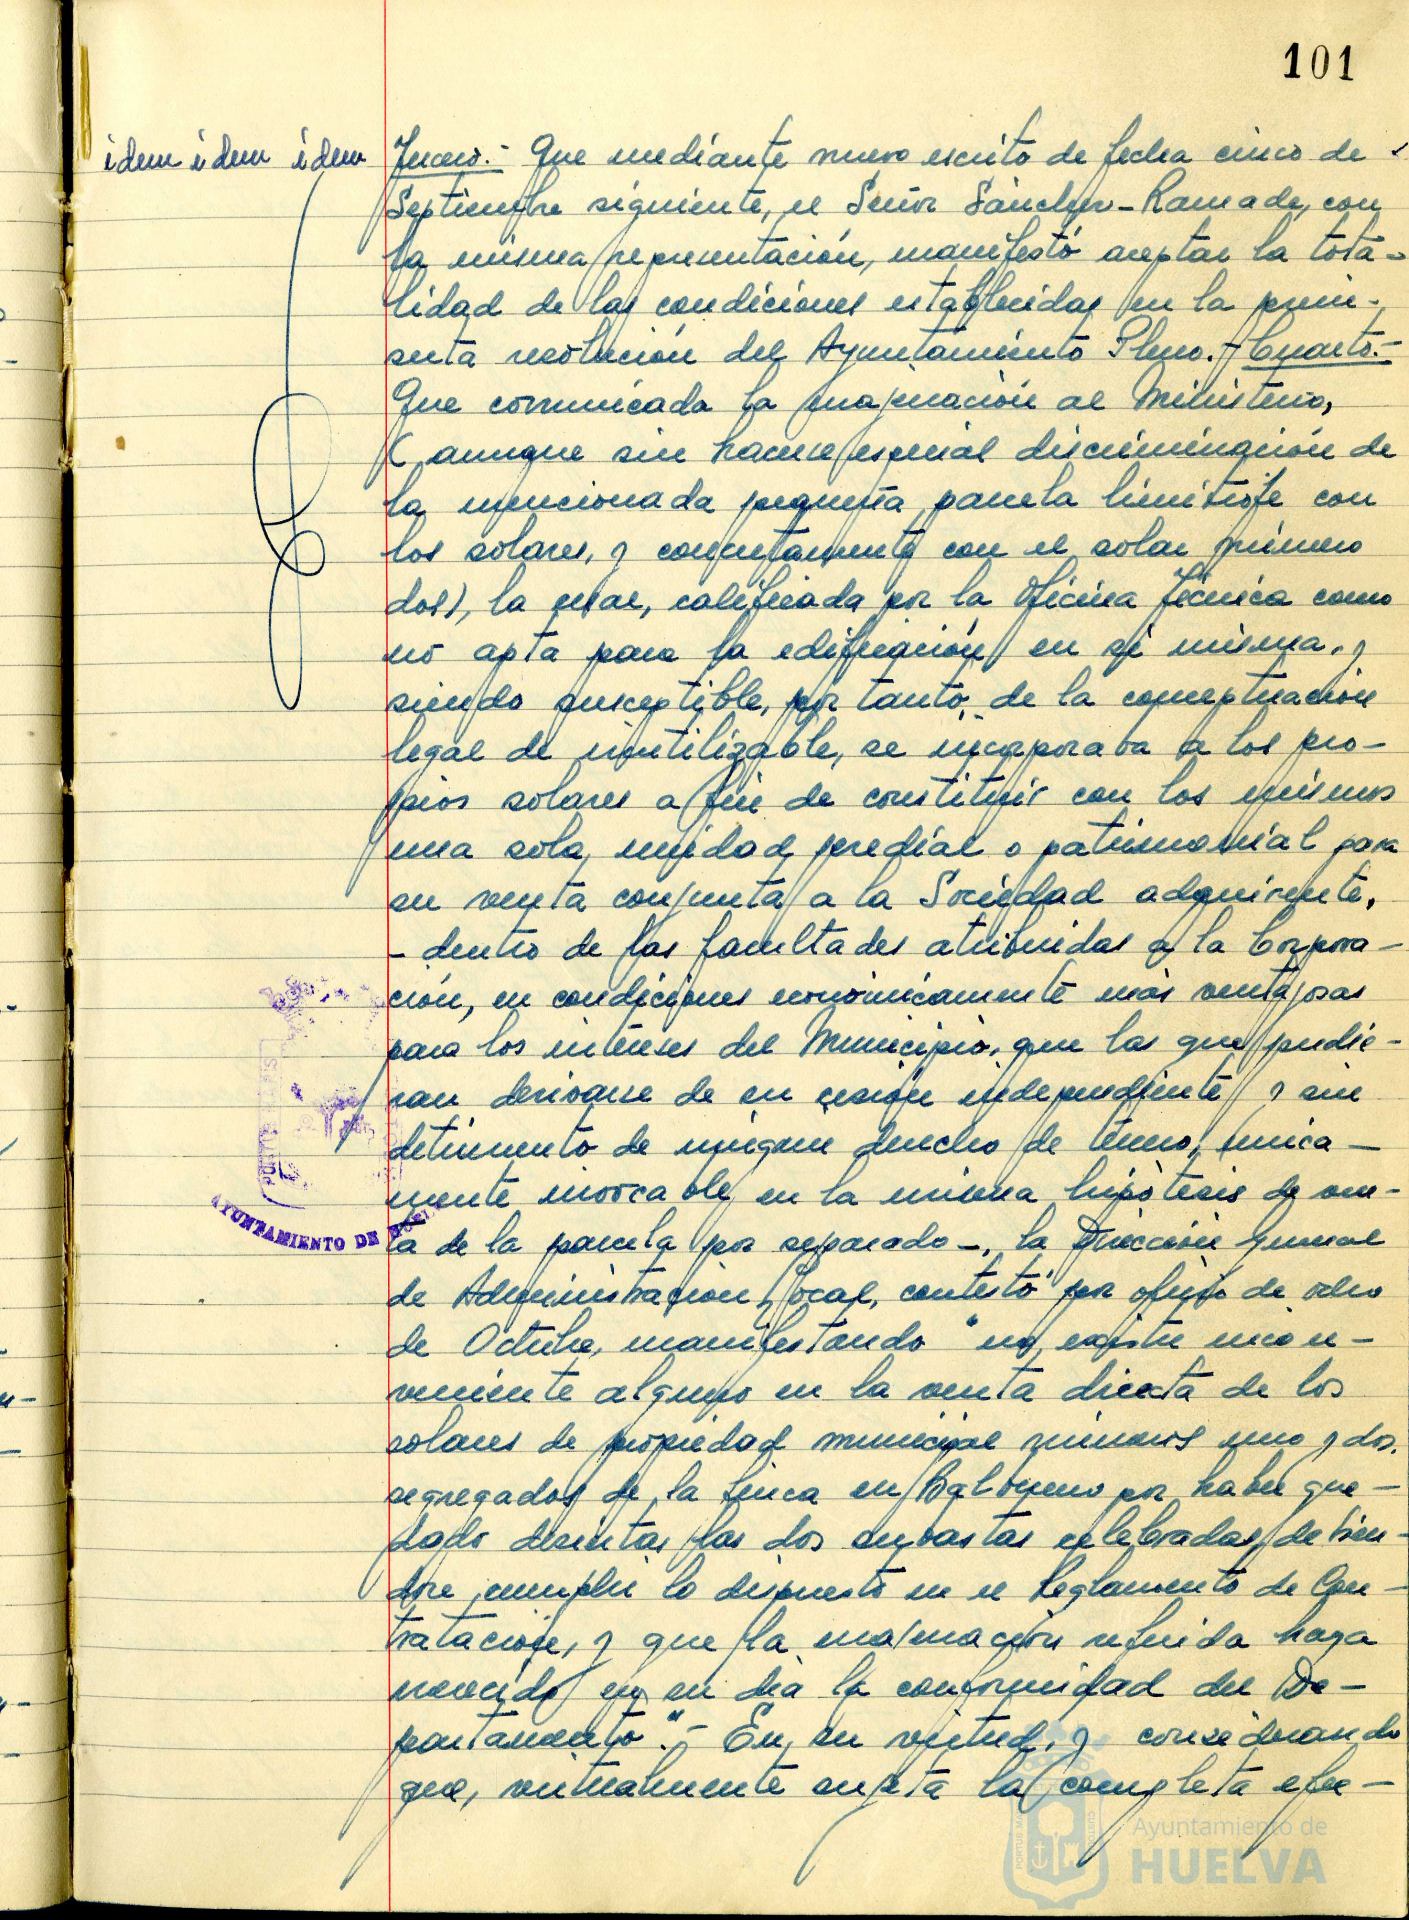 101
idem idem idem
Tercero.- Que mediante nuevo escrito de fecha cinco de
Septiembre siguiente, el Señor Sánchez-Ramade, con
la misma representación, manifestó aceptar la tota-
lidad de las condiciones establecidas en la prein-
serta resolución del Ayuntamiento Pleno.- Cuarto.-
Que comunicada la enajenación al Ministerio,
(aunque sin hacerse especial discriminación de
la mencionada pequeña parcela limítrofe con
los solares, y conjuntamente con el solar número
dos), la cual, calificada por la Oficina Técnica como
no apta para la edificación en sí misma, y
siendo susceptible, por tanto, de la conceptuación
legal de inutilizable, se incorporaba a los pro-
pios solares a fin de constituir con los mismos
una sola unidad predial o patrimonial para
su venta conjunta a la Sociedad adquirente,
- dentro de las facultades atribuidas a la Corpora-
ción, en condiciones economicamente más ventajosas
para los intereses del Municipio, que las que pudie-
ran derivarse de su cesión independiente y sin
detrimento de ningun derecho de tercero, unica-
mente invocable en la misma hipótesis de ven-
ta de la parcela por separado -, la Dirección General
de Administración Local, contestó por oficio de ocho
de Octubre, manifestando "no existe incon-
veniente alguno en la venta directa de los
solares de propiedad municipal números uno y dos,
segregados de la finca en Balbueno por haber que-
dado desiertas las dos subastas celebradas, debien-
dose cumplir lo dispuesto en el Reglamento de Con-
tratación, y que la enajenación referida haya
merecido en su día la conformidad del De-
partamento".- En su virtud, y considerando
que, virtualmente sujeta la completa efec-
PORTUS MARIS
AYUNTAMIENTO DE HUELVA
Ayuntamiento de
HUELVA